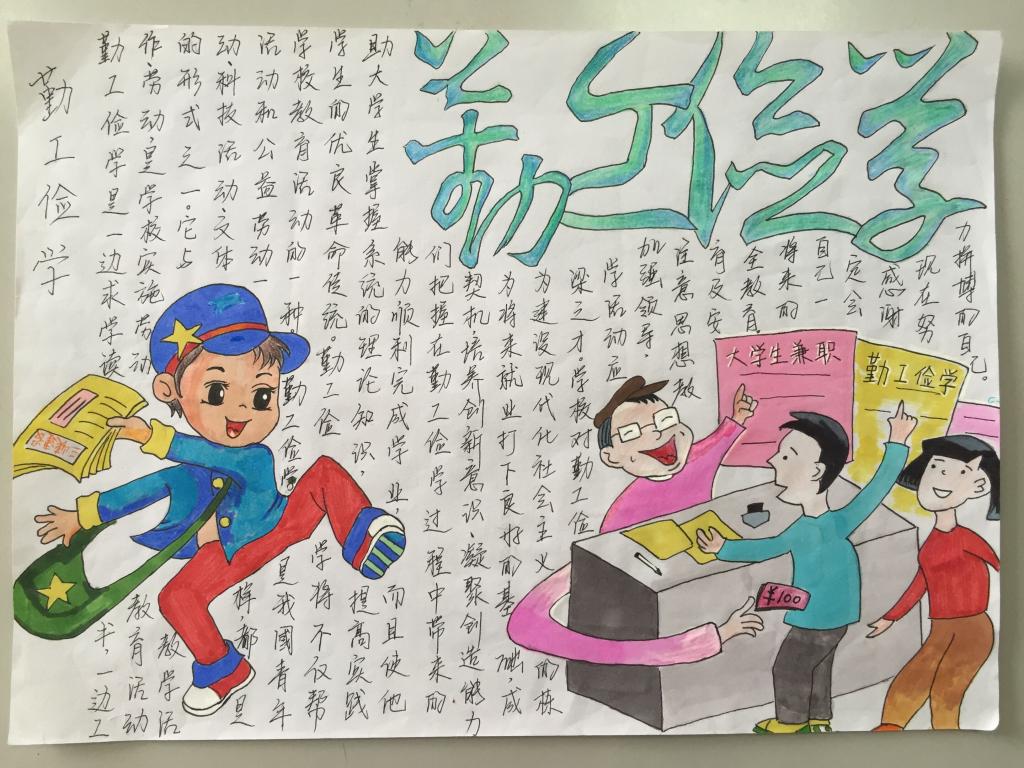 勤工俭学
勤工俭学是一边求学读书,一边工
作、劳动,是学校实施劳动教育活动
的形式之一。它与教学活
动、科技活动、文体
活动和公益劳动一样,都是
学校教育活动的一种勤工俭学是我國青年
学生的优良革命传统。勤工俭学将不仅帮
助大学生掌握系统的理论知识,提高实践
能力顺利完成学业,而且使他
们把握在勤工俭学过程中带来的
契机培养创新意识、凝聚创造能力
为将来就业打下良好的基础,成
为建设现代化社会主义的栋
梁之才。学校对勤工俭
学活动应
加强领导,
注意思想教
育及安
全教育,
将来的
自己一
定会
感谢
现在努
力拼博的自己。
勤工俭学
大学生兼职
勤工俭学
¥100